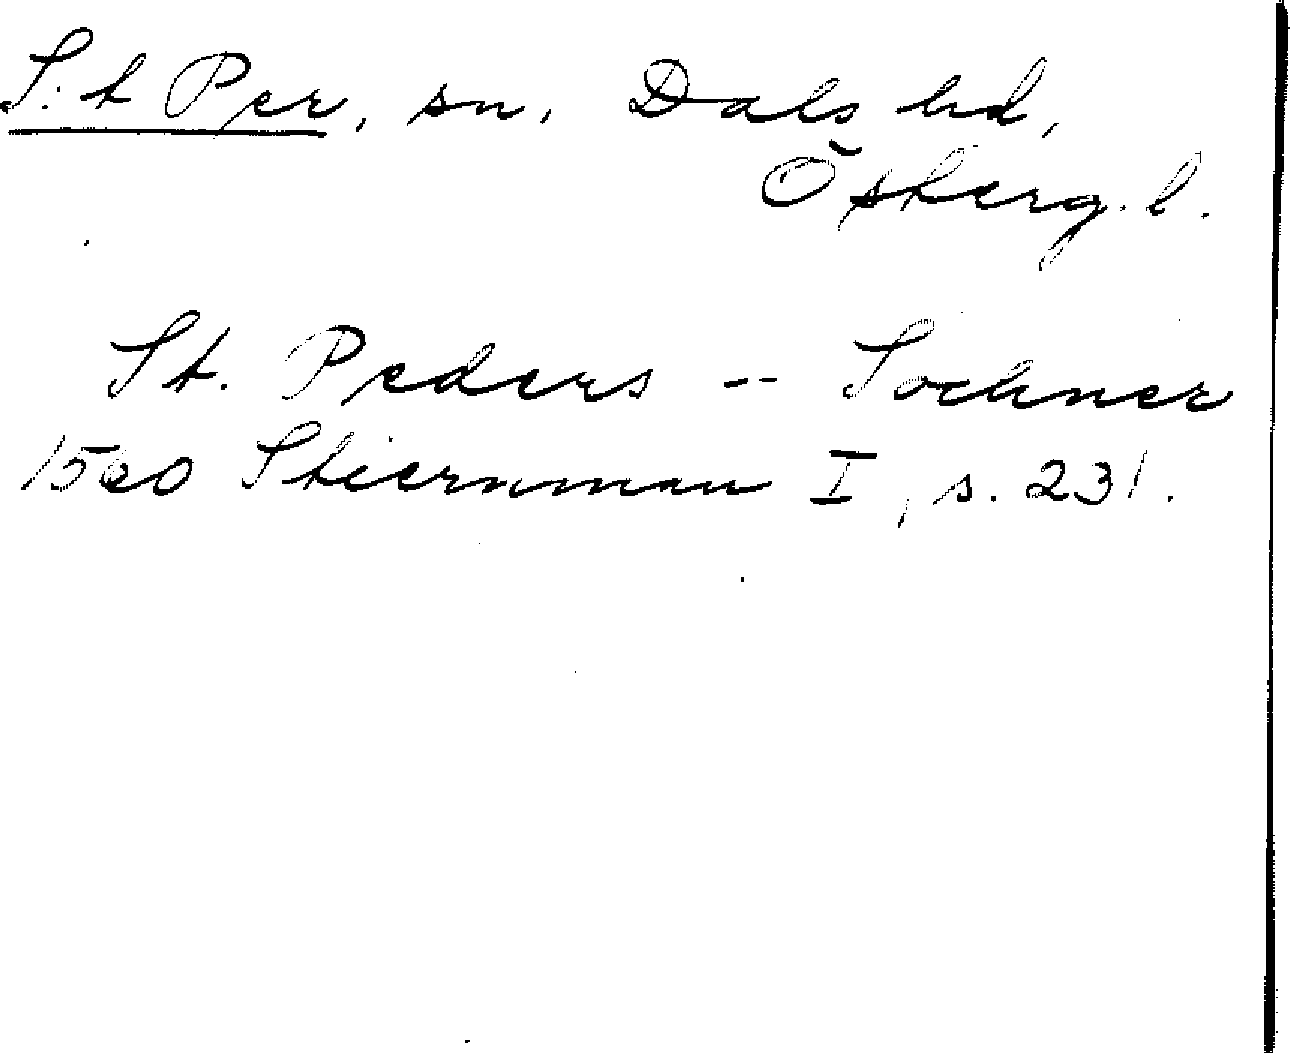 S:t Per, sn, Dals hd,
Österg. l.
St. Peders -- Sochner
1500 Stiernman I, s. 231.